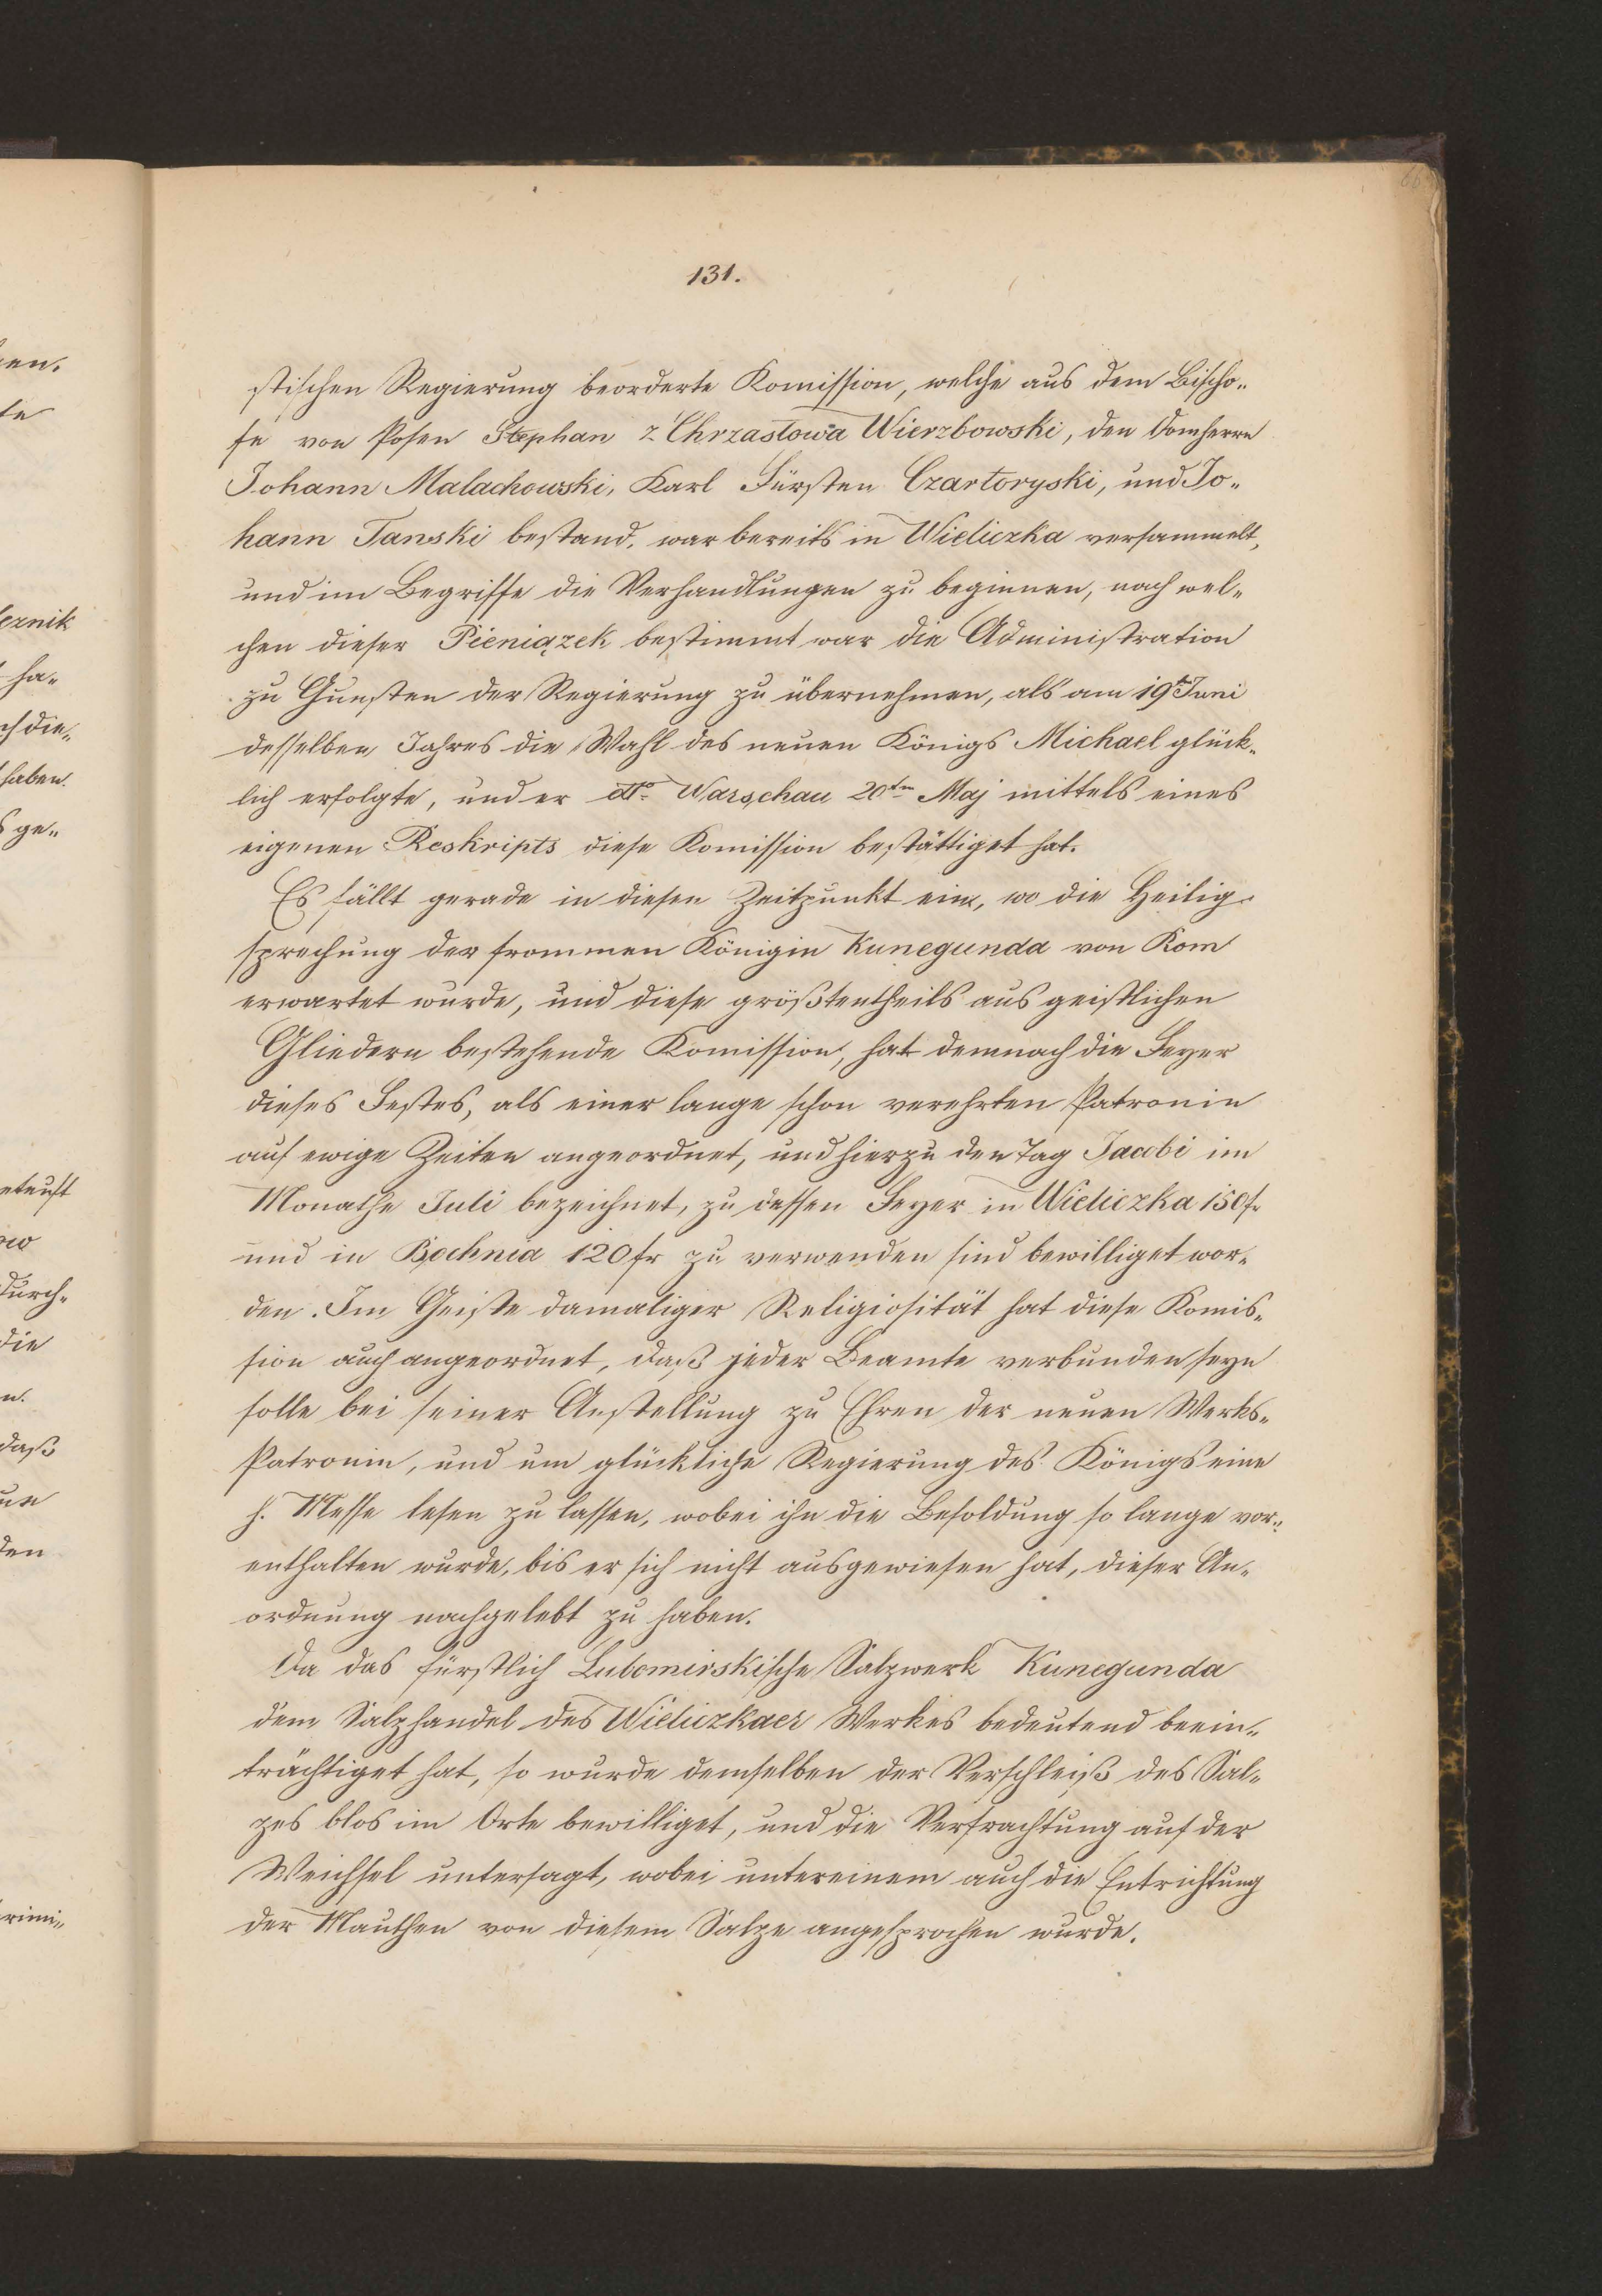 131.
stischen Regierung beorderte Komission, welche aus dem Bischo„
fe von Posen Stephan z Chrzastowa Wierzbowski, den Domherrn
Johann Malachowski, Karl Fürsten Czartoryski, und Jo„
hann Tanski bestand, war bereits in Wieliczka versammelt,
und im Begriffe die Verhandlungen zu beginnen, nach wel„
chen dieser Pieniązek bestimmt war die Administration
zu Gunsten der Regierung zu übernehmen, als am 19t Juni
desselben Jahres die Wahl des neuen Königs Michael glück„
lich erfolgte, und er dto Warschau 20tn Maj mittels eines
eigenen Reskripts diese Komission bestättiget hat.
Es fällt gerade in diesen Zeitpunkt ein, wo die Heilig„
sprechung der frommen Königin Kunegunda von Rom
erwartet wurde, und diese größtentheils aus geistlichen
Gliedern bestehende Komission, hat demnach die Feyer
dieses Festes, als einer lange schon verehrten Patronin
auf ewige Zeiten angeordnet, und hierzu den Tag Jacobi im
Monathe Juli bezeichnet, zu dessen Feyer in Wieliczka 150 fr
und in Bochnia 120 fr zu verwenden sind bewilliget wor„
den. Im Geiste damaliger Religiosität hat diese Komis„
sion auch angeordnet, daß jeder Beamte verbunden seyn
solle bei seiner Anstellung zu Ehren der neuen Werks„
Patronin, und um glückliche Regierung des Königs eine
h. Messe lesen zu lassen, wobei ihn die Besoldung so lange vor„
enthalten wurde, bis er sich nicht ausgewiesen hat, dieser An„
ordnung nachgelebt zu haben.
Da das fürstlich Lubomirskische Salzwerk Kunegunda
dem Salzhandel des Wieliczkaer Werkes bedeutend beein„
trächtiget hat, so wurde demselben der Verschleiß des Sal„
zes blos im Orte bewilliget, und die Verfrachtung auf der
Weichsel untersagt, wobei untereinem auch die Entrichtung
der Mauthen von diesem Salze angesprochen wurde.